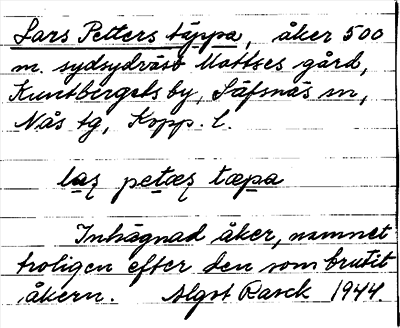 Lars Petters täppa, åker 500
m. sydsydväst Mattses gård,
Kuntbergets by, Säfsnäs sn,
Nås tg, Kopp. l.
Inhägnad åker, namnet
troligen efter den som brutit
åkern. Algot Rasck 1944.